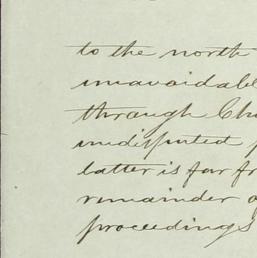 to the north
unavoidabl
through Ch
undisputed
latter is far fr
remainder o
proceedings